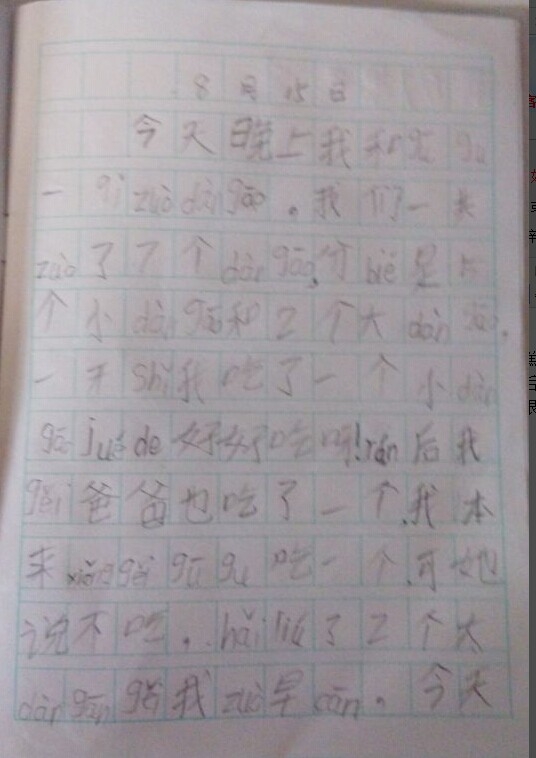 8月15日
今天晚上我和gū gu
一qǐ zuò dàn gāo。我们一共
zuò了7个dàn gāo,分bié是5
个小dàn gāo和2个大dàn gāo。
一开shǐ我吃了一个小dàn
gāo jué de好好吃呀!rán后我
gěi爸爸也吃了一个,我本
来xiǎng gěi gū gu吃一个,可她
说不吃,hái liú了2个大
dàn gāo gěi我zuò早cān。今天